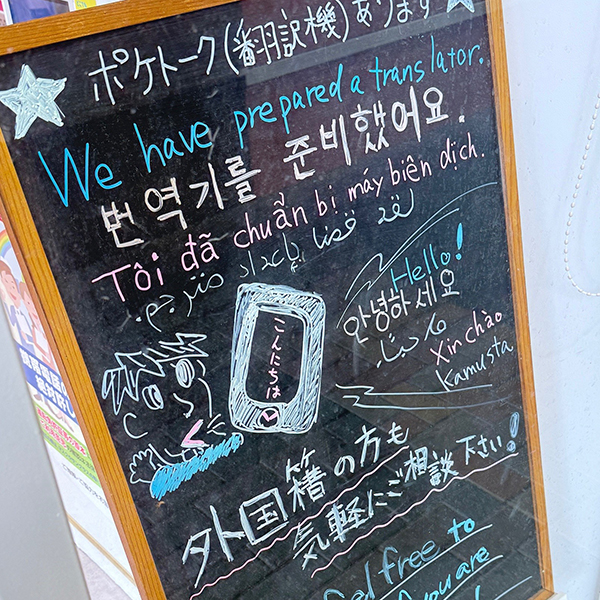 ポケトーク(翻訳機)あります
We have prepared a translator.
번역기를 준비했어요.
Tôi đã chuẩn bị máy biên dịch.
لقد قمنا بإعداد مترجم.
Hello!
안녕하세요
مرحبًا
Xin chào
Kamusta
こんにちは
外国籍の方も
気軽にご相談下さい!
Feel free to
you are